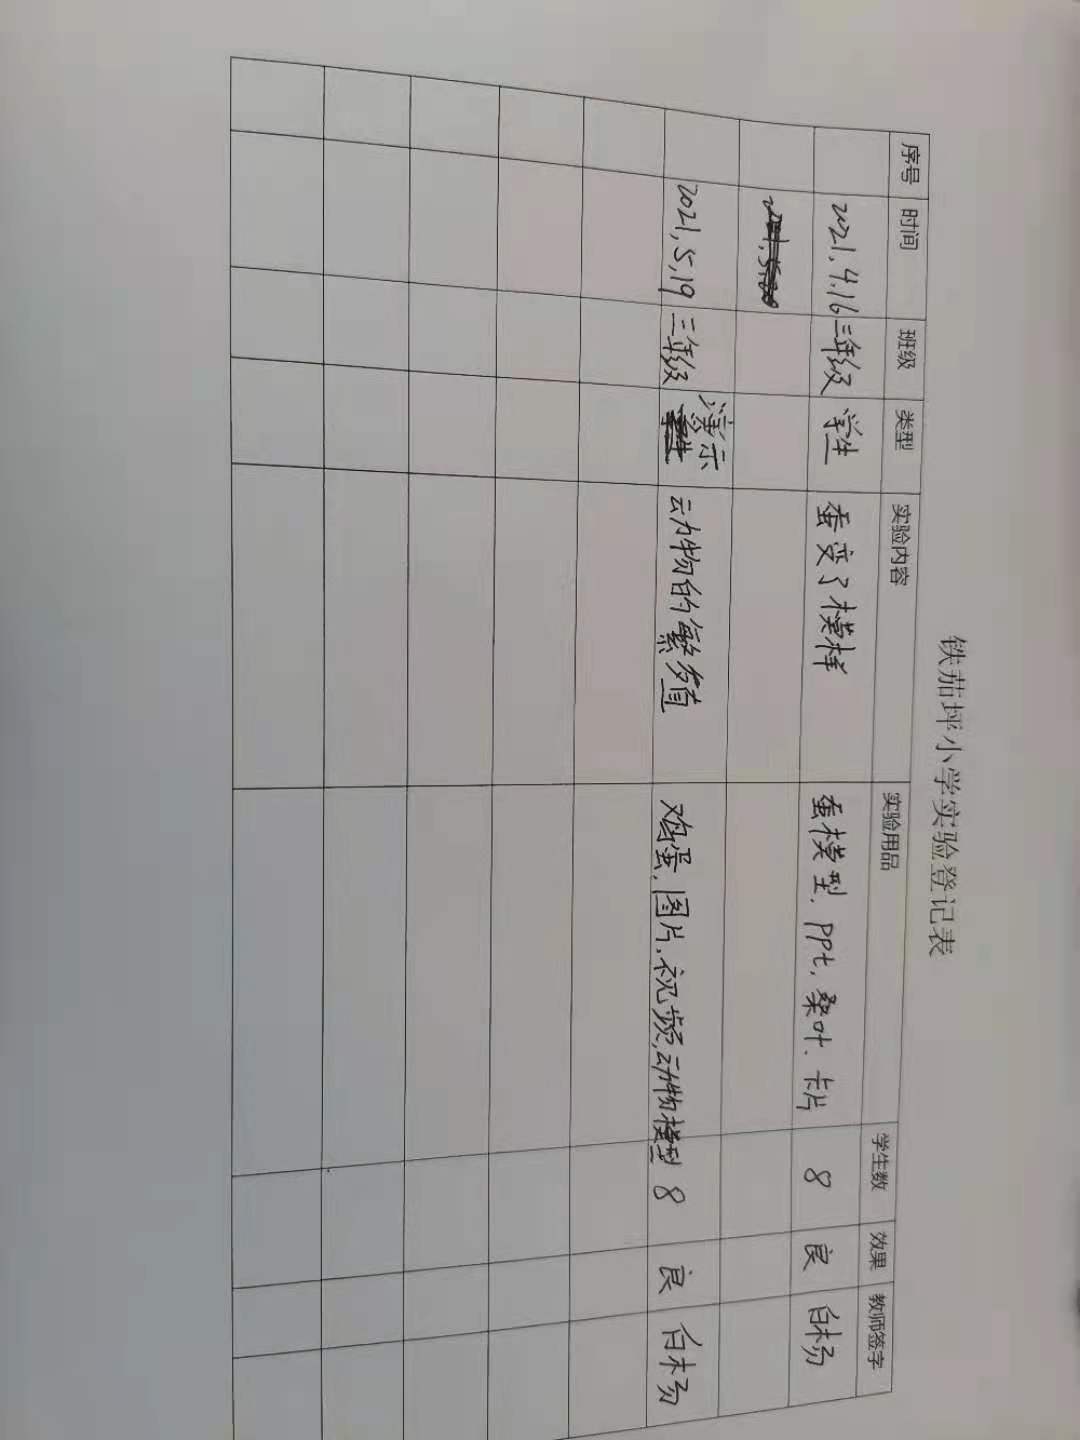 铁茄坪小学实验登记表
序号 时间 班级 类型 实验内容 实验用品 学生数 效果 教师签字
2021,4.16 三年级 学生 蚕变了模样 蚕模型,ppt,桑叶.卡片 8 良 白杨
2021,5,19 三年级 演示 动物的繁殖 鸡蛋,图片,视频,动物模型 8 良 白杨